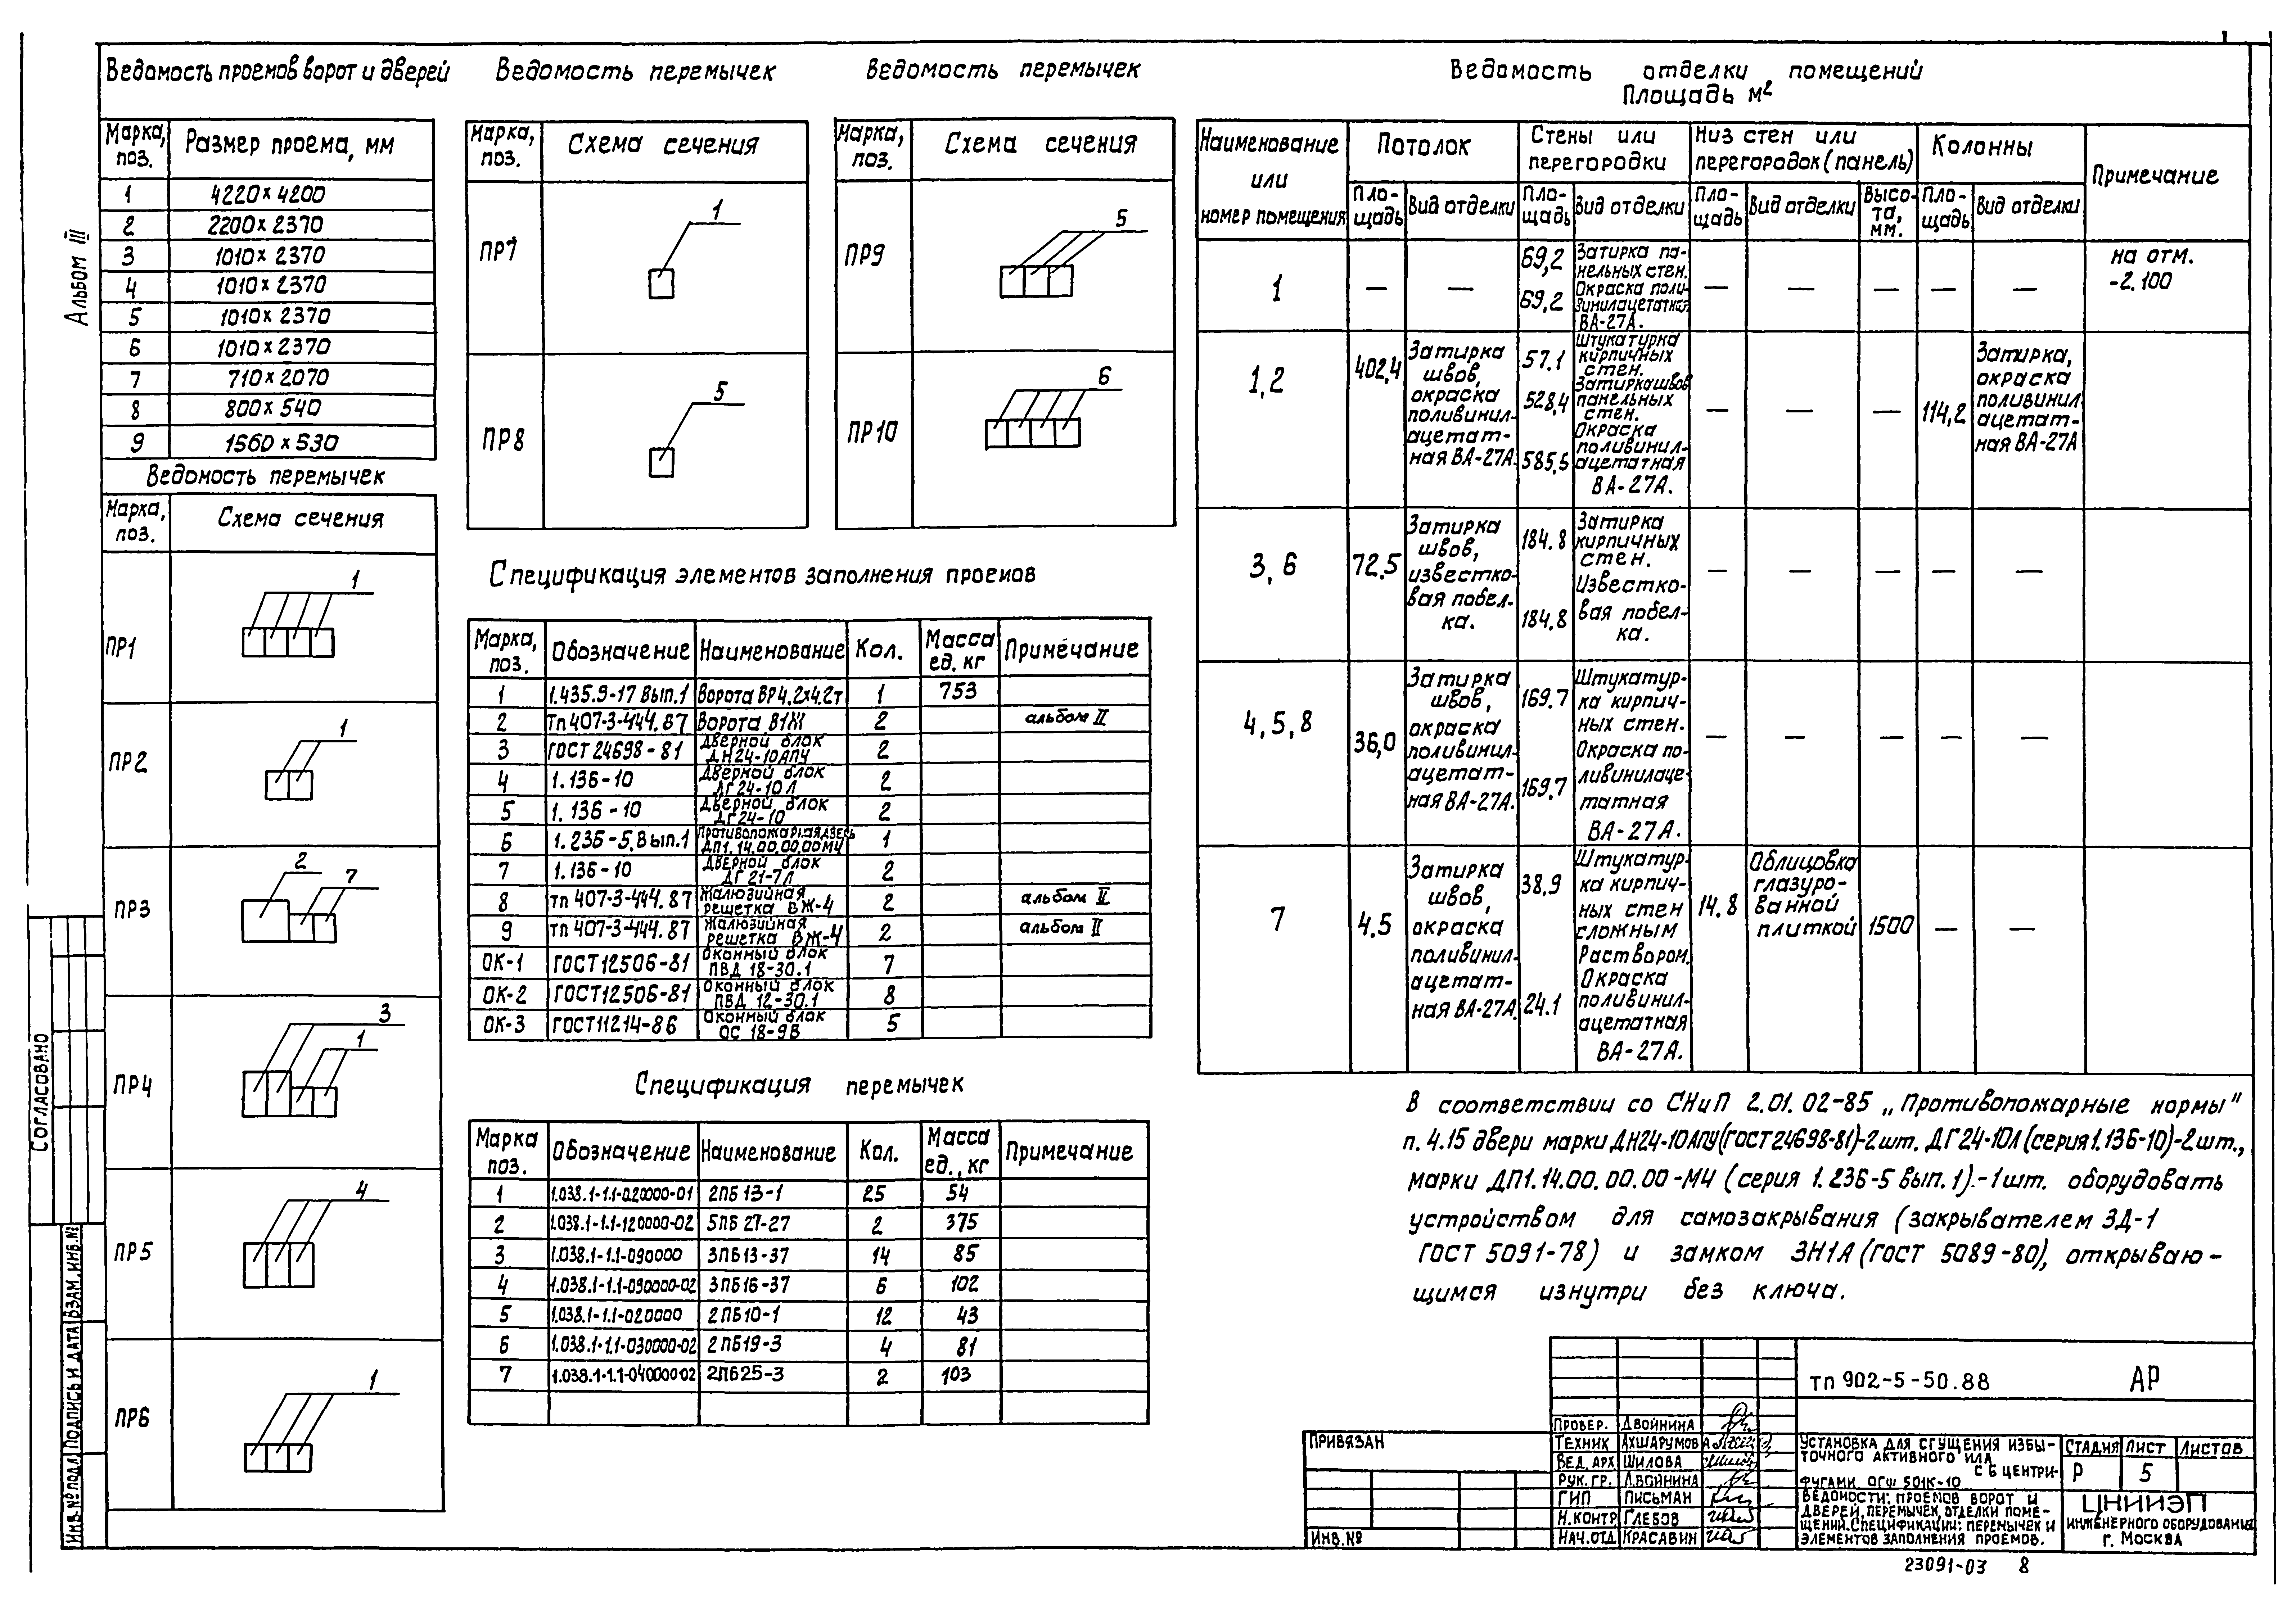 Альбом III
Ведомость проемов ворот и дверей
Марка, поз. Размер проема, мм
1 4220×4200
2 2200×2370
3 1010×2370
4 1010×2370
5 1010×2370
6 1010×2370
7 710×2070
8 800×540
9 1560×530
Ведомость перемычек
Марка, поз. Схема сечения
ПР1 1
ПР2 1
ПР3 2 7
ПР4 3 1
ПР5 4
ПР6 1
Ведомость перемычек
Марка, поз. Схема сечения
ПР7 1
ПР8 5
Ведомость перемычек
Марка, поз. Схема сечения
ПР9 5
ПР10 6
Спецификация элементов заполнения проемов
Марка, поз. Обозначение Наименование Кол. Масса ед. кг Примечание
1 1.435.9-17 Вып.1 Ворота ВР4.2х4.2т 1 753
2 тп 407-3-444.87 Ворота В1Ж 2 альбом II
3 ГОСТ 24698-81 Дверной блок ДН24-10АПУ 2
4 1.136-10 Дверной блок ДГ24-10Л 2
5 1.136-10 Дверной блок ДГ24-10 2
6 1.236-5. Вып.1 Противопожарная дверь ДП1.14.00.00.00МЧ 1
7 1.136-10 Дверной блок ДГ21-7Л 2
8 тп 407-3-444.87 Жалюзийная решетка ВЖ-4 2 альбом II
9 тп 407-3-444.87 Жалюзийная решетка ВЖ-4 2 альбом II
ОК-1 ГОСТ12506-81 Оконный блок ПВД 18-30.1 7
ОК-2 ГОСТ12506-81 Оконный блок ПВД 12-30.1 8
ОК-3 ГОСТ11214-86 Оконный блок ОС 18-9В 5
Спецификация перемычек
Марка поз. Обозначение Наименование Кол. Масса ед., кг Примечание
1 1.038.1-1.1-020000-01 2ПБ13-1 25 54
2 1.038.1-1.1-120000-02 5ПБ27-27 2 375
3 1.038.1-1.1-090000 3ПБ13-37 14 85
4 1.038.1-1.1-090000-02 3ПБ16-37 6 102
5 1.038.1-1.1-020000 2ПБ10-1 12 43
6 1.038.1-1.1-030000-02 2ПБ19-3 4 81
7 1.038.1-1.1-040000-02 2ПБ25-3 2 103
Ведомость отделки помещений
Площадь м²
Наименование или номер помещения Потолок Стены или перегородки Низ стен или перегородок (панель) Колонны Примечание
Площадь Вид отделки Площадь Вид отделки Площадь Вид отделки Высота, мм. Площадь Вид отделки
1 — — 69,2 Затирка панельных стен. 69,2 Окраска поливинилацетатная ВА-27А. — — — — — на отм. -2.100
1,2 402,4 Затирка швов, окраска поливинилацетатная ВА-27А. 57.1 Штукатурка кирпичных стен. 528,4 Затирка швов панельных стен. 585,5 Окраска поливинилацетатная ВА-27А. — — — 114,2 Затирка, окраска поливинилацетатная ВА-27А
3, 6 72.5 Затирка швов, известковая побелка. 184.8 Затирка кирпичных стен. 184.8 Известковая побелка. — — — — —
4, 5, 8 36,0 Затирка швов, окраска поливинилацетатная ВА-27А. 169.7 Штукатурка кирпичных стен. 169.7 Окраска поливинилацетатная ВА-27А. — — — — —
7 4.5 Затирка швов, окраска поливинилацетатная ВА-27А. 38,9 Штукатурка кирпичных стен сложным Раствором. 24.1 Окраска поливинилацетатная ВА-27А. 14.8 Облицовка глазурованной плиткой 1500 — —
В соответствии со СНиП 2.01.02-85 „Противопожарные нормы"
п. 4.15 двери марки ДН24-10АПУ(ГОСТ24698-81)-2шт. ДГ24-10Л(серия1.136-10)-2шт.,
марки ДП1.14.00.00.00-МЧ (серия 1.236-5 вып.1)-1шт. оборудовать
устройством для самозакрывания (закрывателем ЗД-1
ГОСТ 5091-78) и замком ЗН1А (ГОСТ 5089-80), открываю-
щимся изнутри без ключа.
СОГЛАСОВАНО
ИНВ.№ ПОДЛ. ПОДПИСЬ И ДАТА ВЗАМ. ИНВ.№
ПРИВЯЗАН
ИНВ.№
ПРОВЕР. ДВОЙНИНА
ТЕХНИК АХШАРУМОВА
ВЕД. АРХ ШИЛОВА
РУК. ГР. ДВОЙНИНА
ГИП ПИСЬМАН
Н.КОНТР ГЛЕБОВ
НАЧ.ОТД КРАСАВИН
тп 902-5-50.88 АР
УСТАНОВКА ДЛЯ СГУЩЕНИЯ ИЗБЫ-
ТОЧНОГО АКТИВНОГО ИЛА
С 6 ЦЕНТРИ-
ФУГАМИ ОГШ 501К-10
СТАДИЯ ЛИСТ ЛИСТОВ
Р 5
ВЕДОМОСТИ: ПРОЕМОВ ВОРОТ И
ДВЕРЕЙ, ПЕРЕМЫЧЕК, ОТДЕЛКИ ПОМЕ-
ЩЕНИЙ. СПЕЦИФИКАЦИИ: ПЕРЕМЫЧЕК И
ЭЛЕМЕНТОВ ЗАПОЛНЕНИЯ ПРОЕМОВ.
ЦНИИЭП
ИНЖЕНЕРНОГО ОБОРУДОВАНИЯ
Г. МОСКВА
23091-03 8